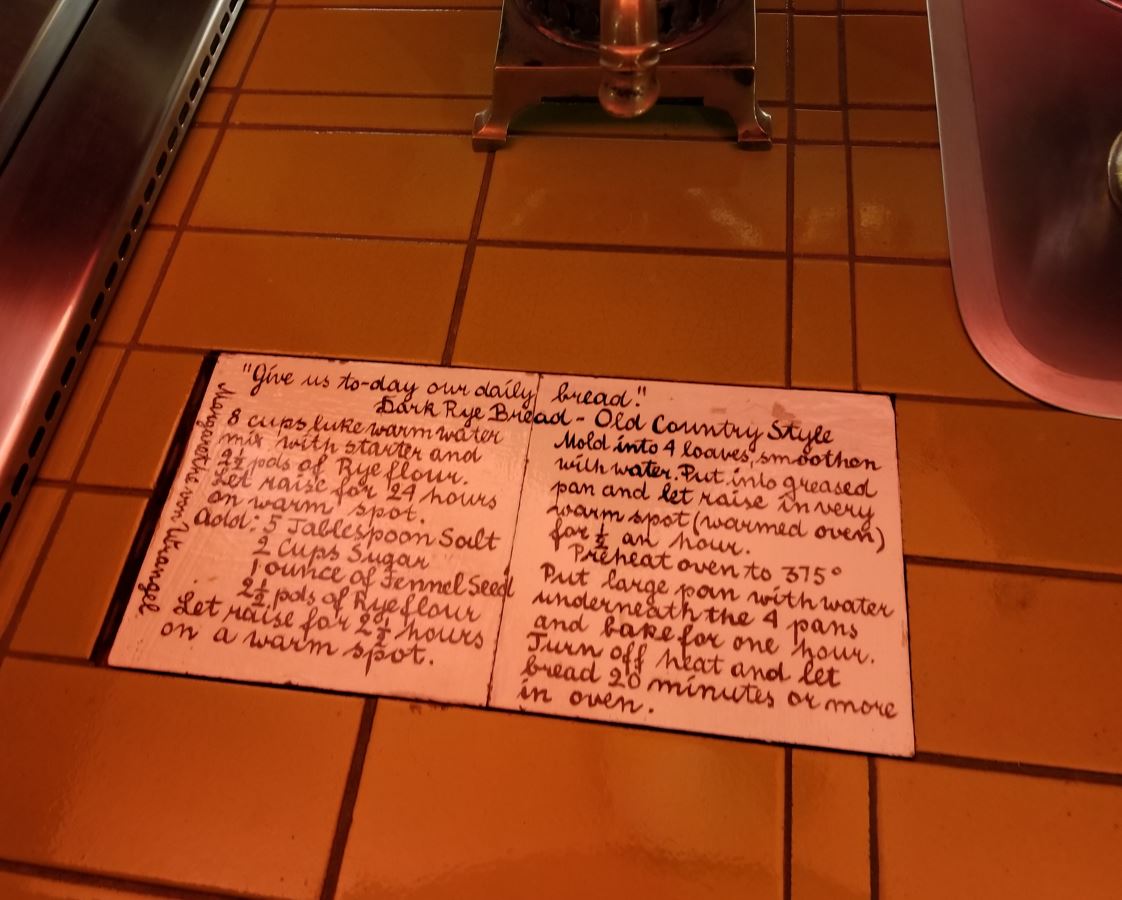 "Give us to-day our daily bread."
Dark Rye Bread - Old Country Style
8 cups luke warm water
mix with starter and
2½ pds of Rye flour.
Let raise for 24 hours
on warm spot.
Add: 5 Tablespoon Salt
2 Cups Sugar
1 ounce of Fennel Seed
2½ pds of Rye flour
Let raise for 2½ hours
on a warm spot.
Mold into 4 loaves, smoothen
with water. Put into greased
pan and let raise in very
warm spot (warmed oven)
for ½ an hour.
Preheat oven to 375°
Put large pan with water
underneath the 4 pans
and bake for one hour.
Turn off heat and let
bread 20 minutes or more
in oven.
von Wrangel